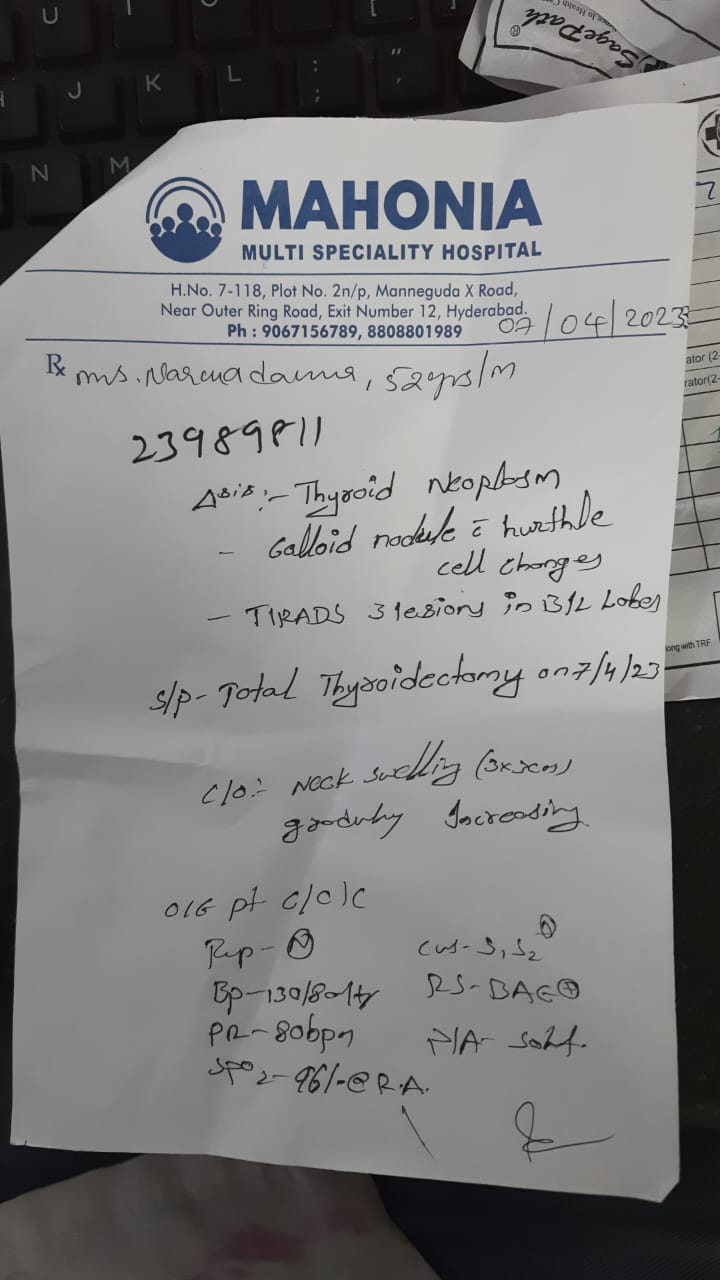 U
I
[
J
K
L
:
;
"
,
N
M
SagePath®
MAHONIA
MULTI SPECIALITY HOSPITAL
H.No. 7-118, Plot No. 2n/p, Manneguda X Road,
Near Outer Ring Road, Exit Number 12, Hyderabad.
Ph : 9067156789, 8808801989
07/04/2023
Rx ms. Narmadamma, 52yrs/m
23989811
Thyroid Neoplasm
- Colloid nodule c̄ hurthle
cell changes
- TIRADS 3 lesions in B/L Lobes
S/p - Total Thyroidectomy on 7/4/23
C/O:- Neck swelling
Increasing
O/E pt c/c/c
Temp - N
CVS - S1, S2 N
Bp - 130/80
RS - BAE +
PR - 80bpm
P/A - soft.
SpO2 - 96/-@ R.A.
ator (2-
rator(2-
ong with TRF.